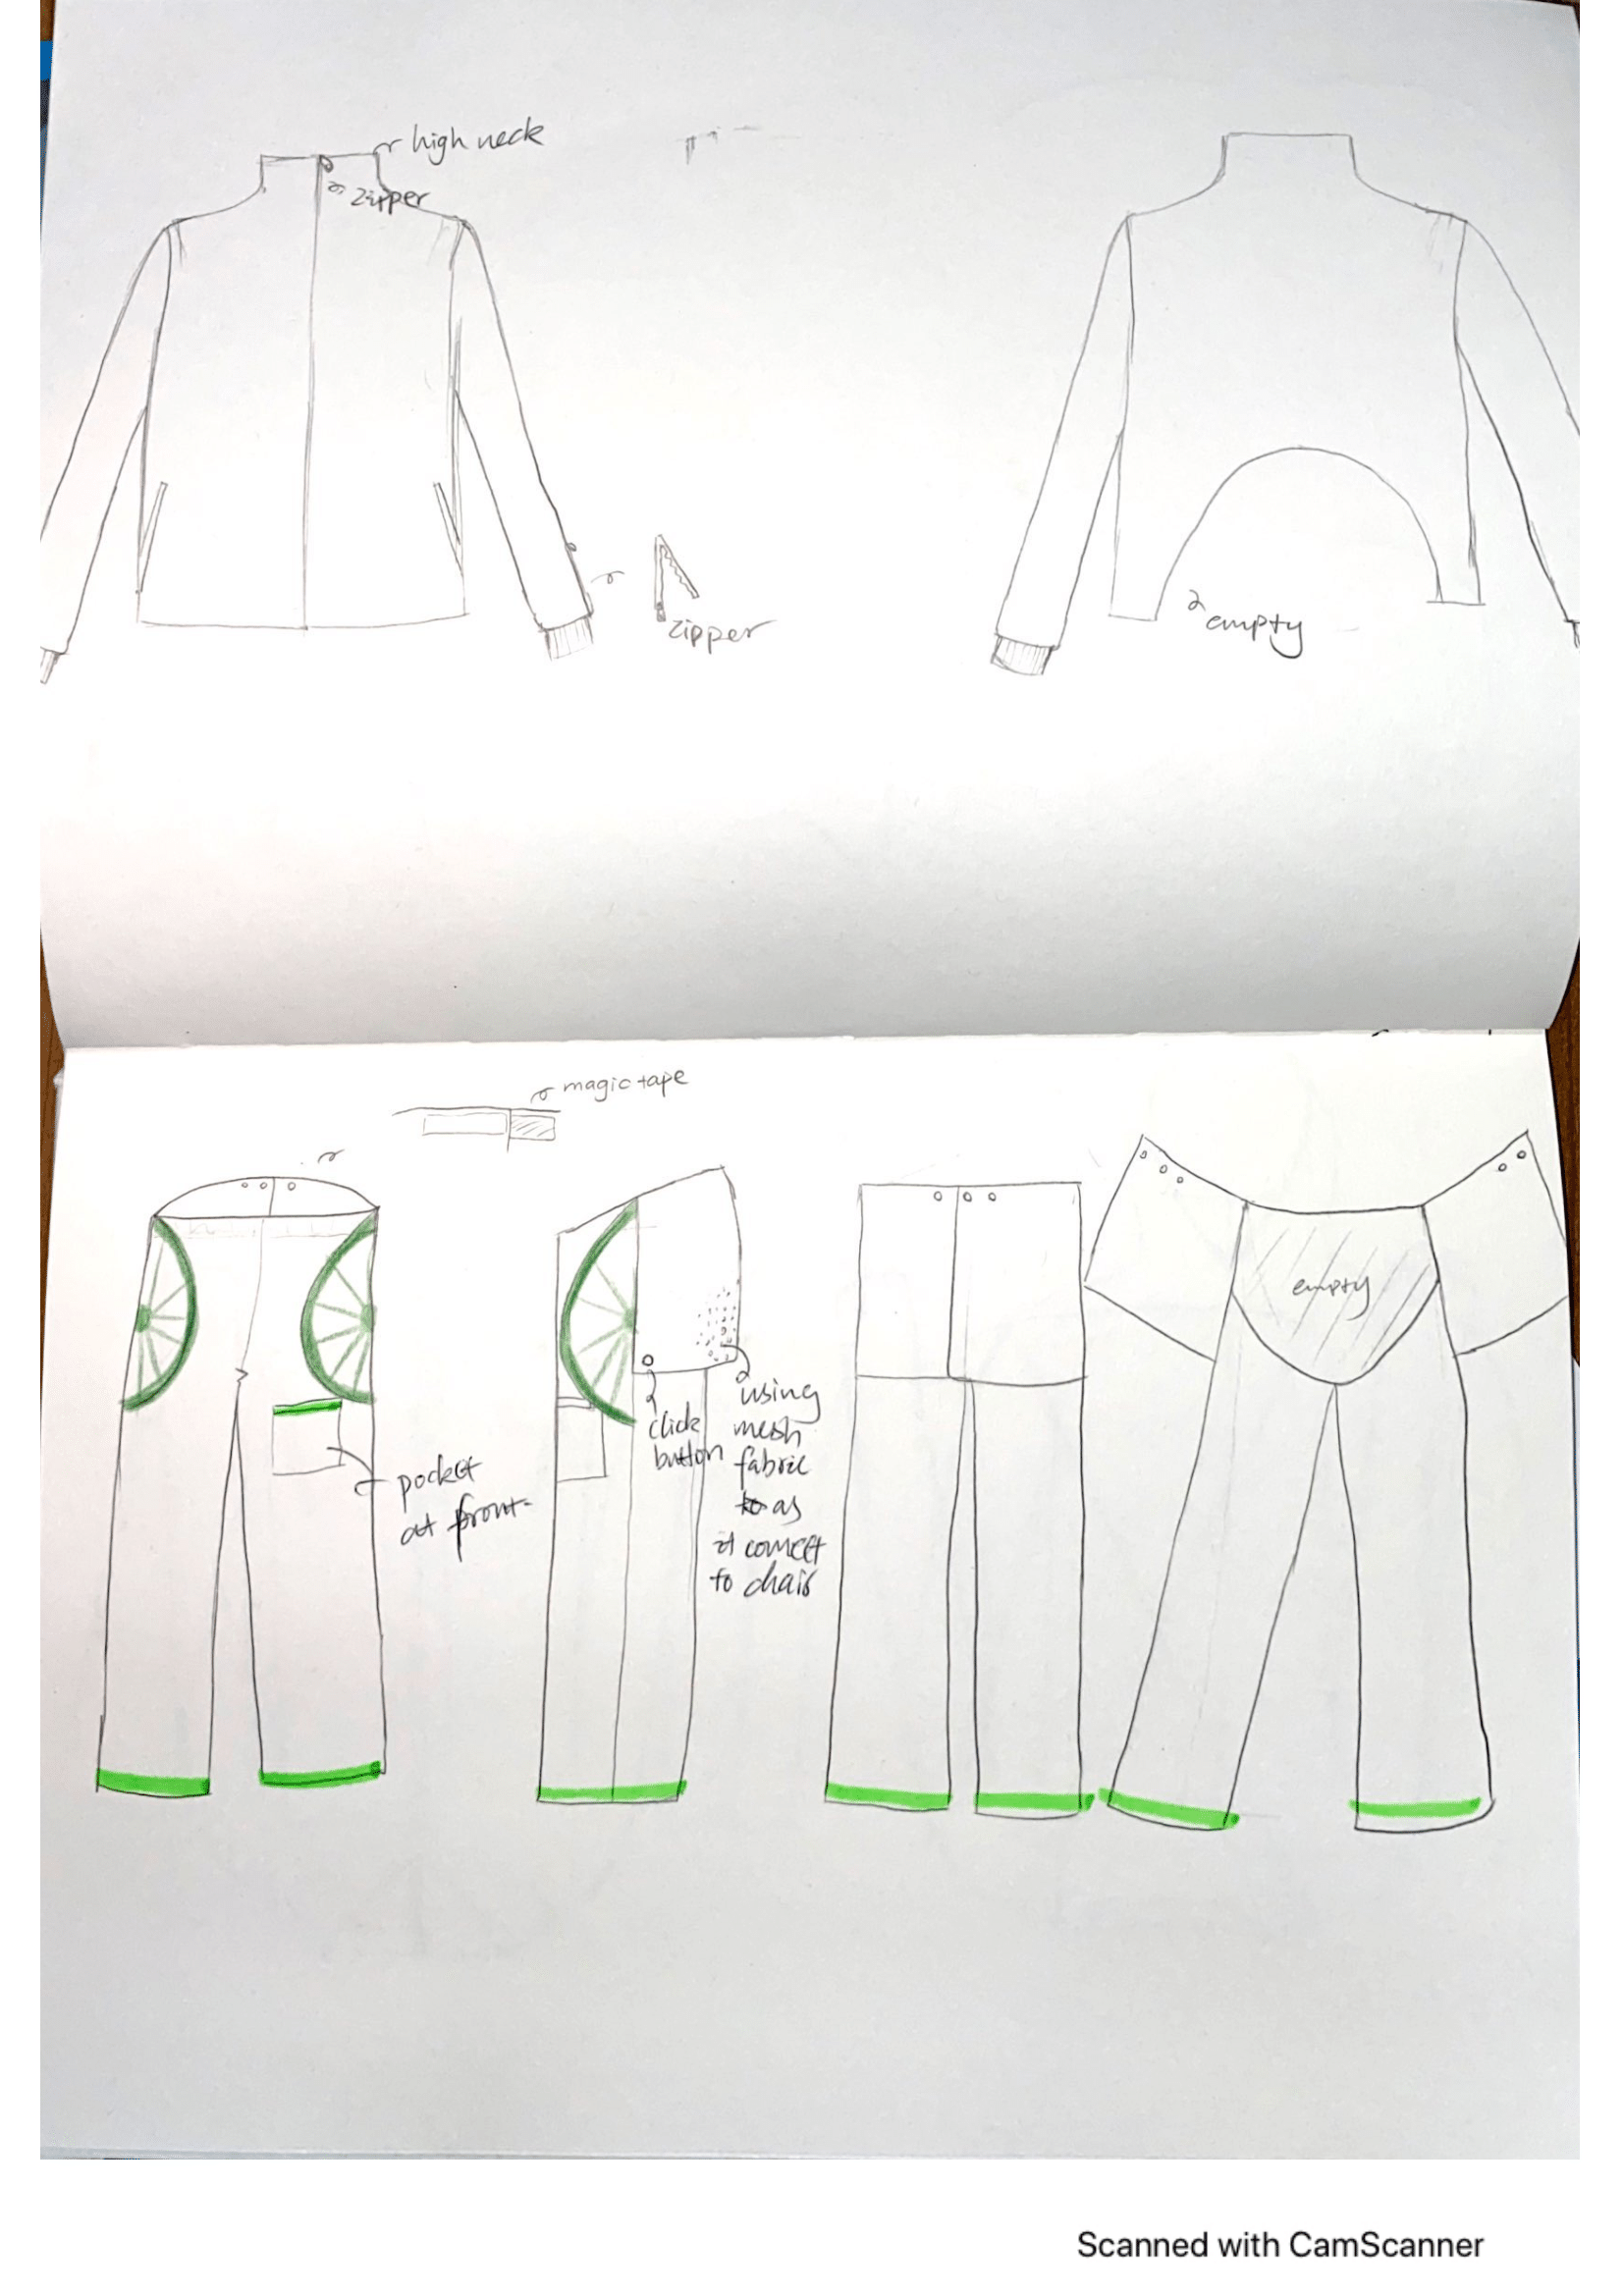 high neck
zipper
zipper
empty
magic tape
empty
pocket
at front
click
button
using
mesh
fabric
as
it connect
to chair
Scanned with CamScanner